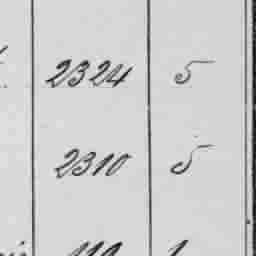 2324 5
2310 5